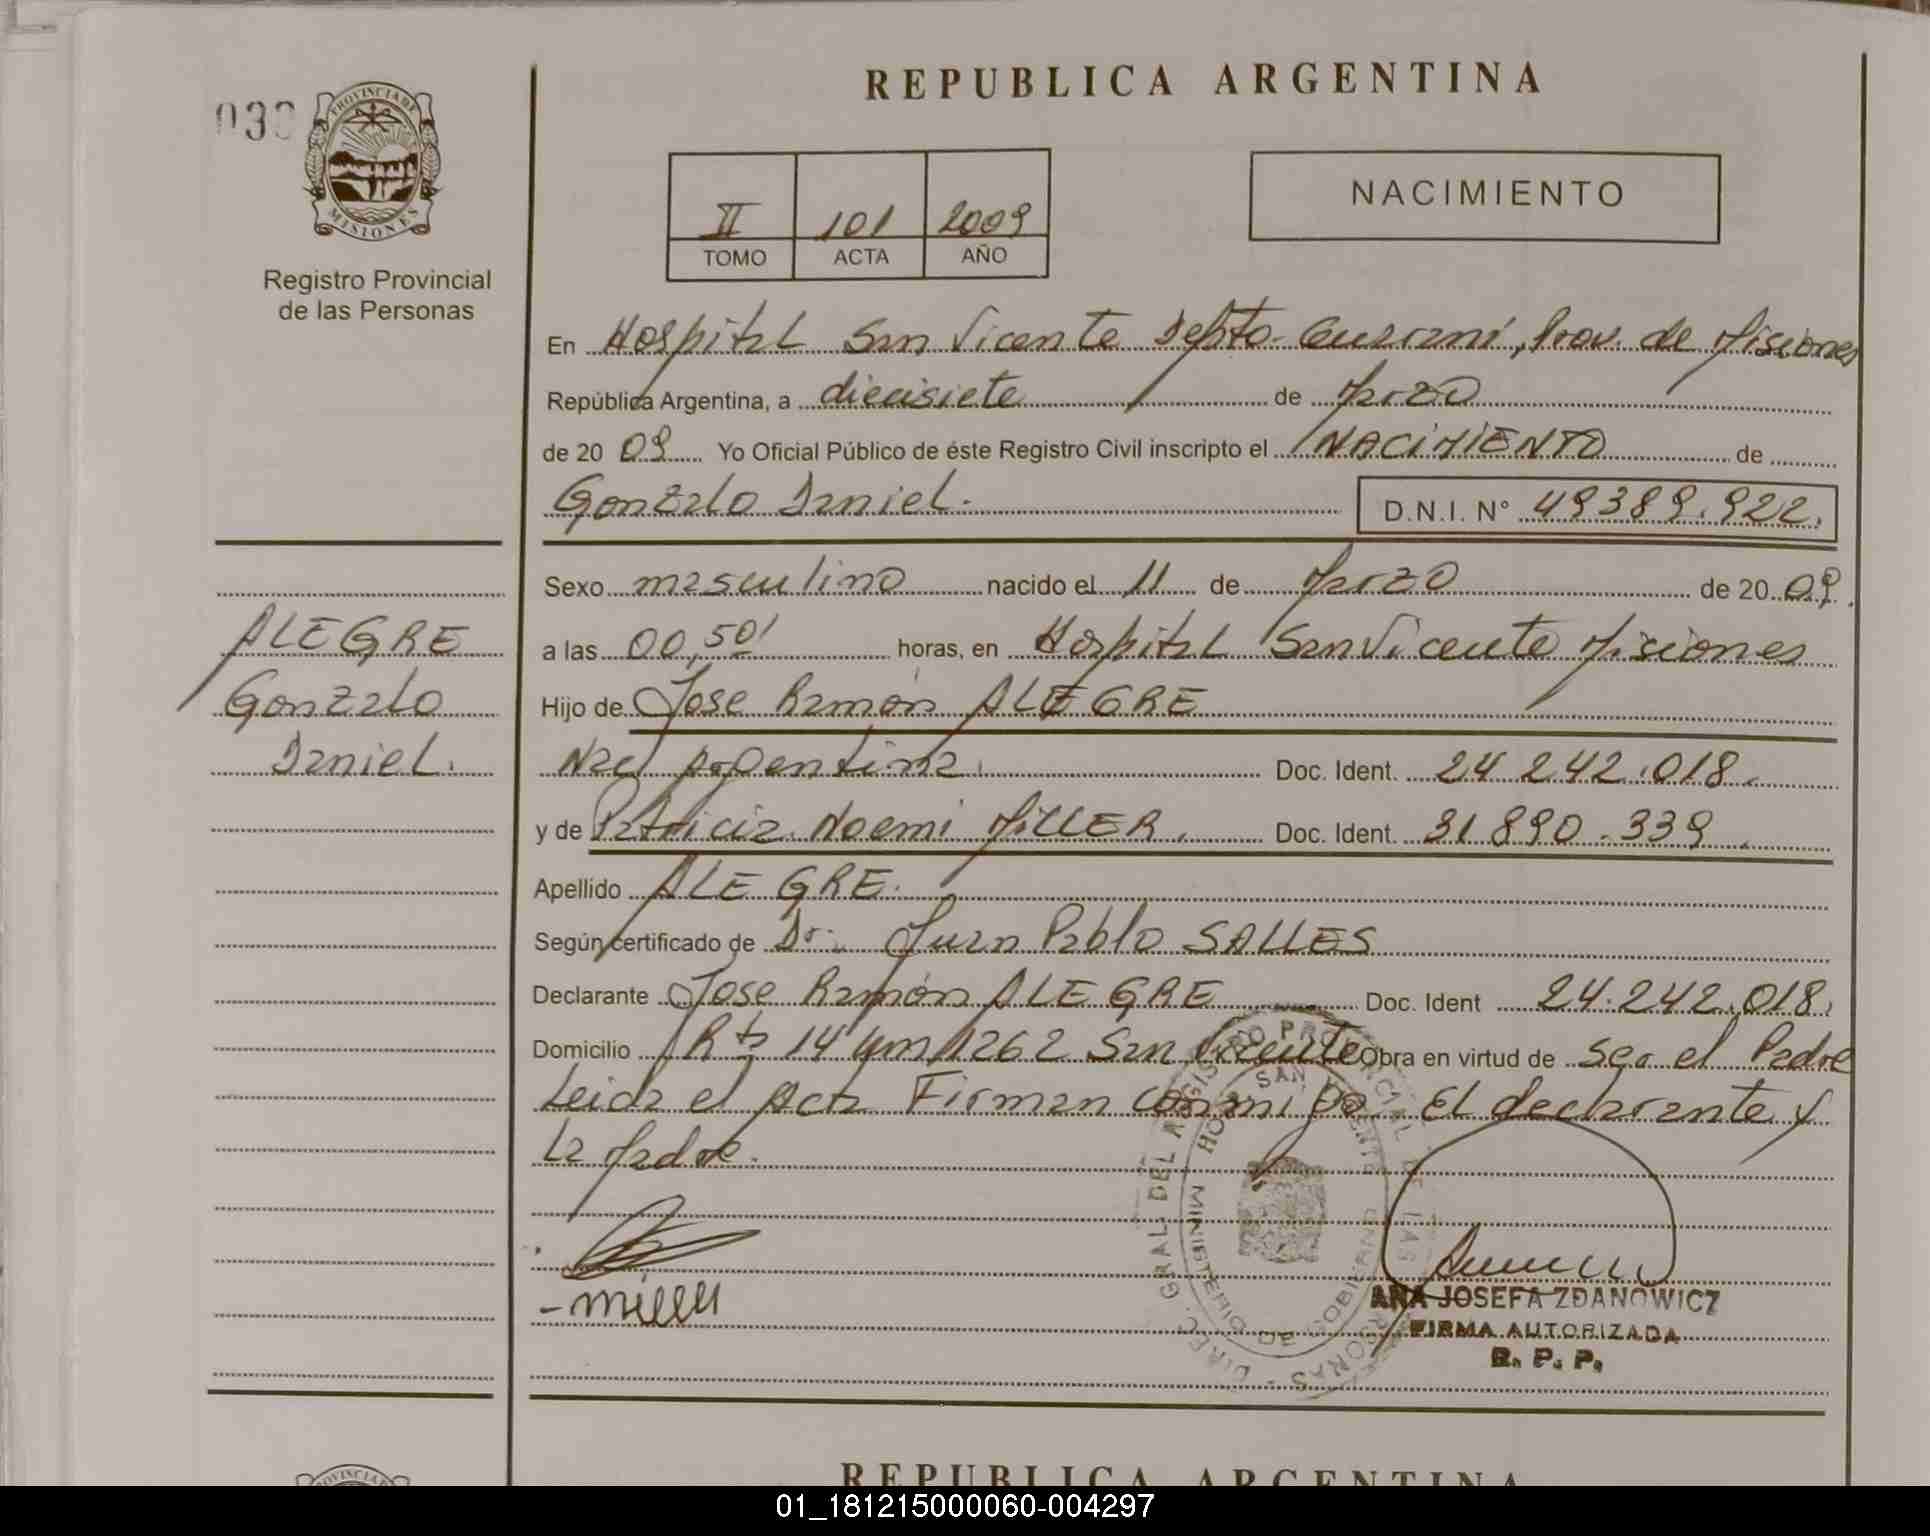 REPUBLICA ARGENTINA
PROVINCIA DE
MISIONES
Registro Provincial
de las Personas
II 101 2009
TOMO ACTA AÑO
NACIMIENTO
En Hospital San Vicente Depto. Guarani, Prov. de Misiones
República Argentina, a diecisiete de Marzo
de 20 09 Yo Oficial Público de éste Registro Civil inscripto el NACIMIENTO de
Gonzalo Daniel. D.N.I. N° 49389.922.
Sexo masculino nacido el 11 de Marzo de 20 09.
a las 00,50' horas, en Hospital San Vicente Misiones
Hijo de Jose Ramón ALEGRE
Nac Argentina. Doc. Ident. 24 242.018.
y de Patricia Noemi MiLLER. Doc. Ident. 31 890.339.
Apellido ALEGRE.
Según certificado de Dr. Juan Pablo SALLES
Declarante Jose Ramón ALEGRE Doc. Ident 24.242.018.
Domicilio Rta 14 Km 1262 San Vicente Obra en virtud de ser el Padre
Leida el Acta Firman conmigo El declarante y
La Madre.
ALEGRE
Gonzalo
Daniel.
- Miller
DIREC. GRAL. DEL REGISTRO PROVINCIAL DE LAS PERSONAS -
HOSP SAN VICENTE
MINISTERIO DE GOBIERNO
ANA JOSEFA ZDANOWICZ
FIRMA AUTORIZADA
R. P. P.
REPUBLICA ARGENTINA
01_181215000060-004297